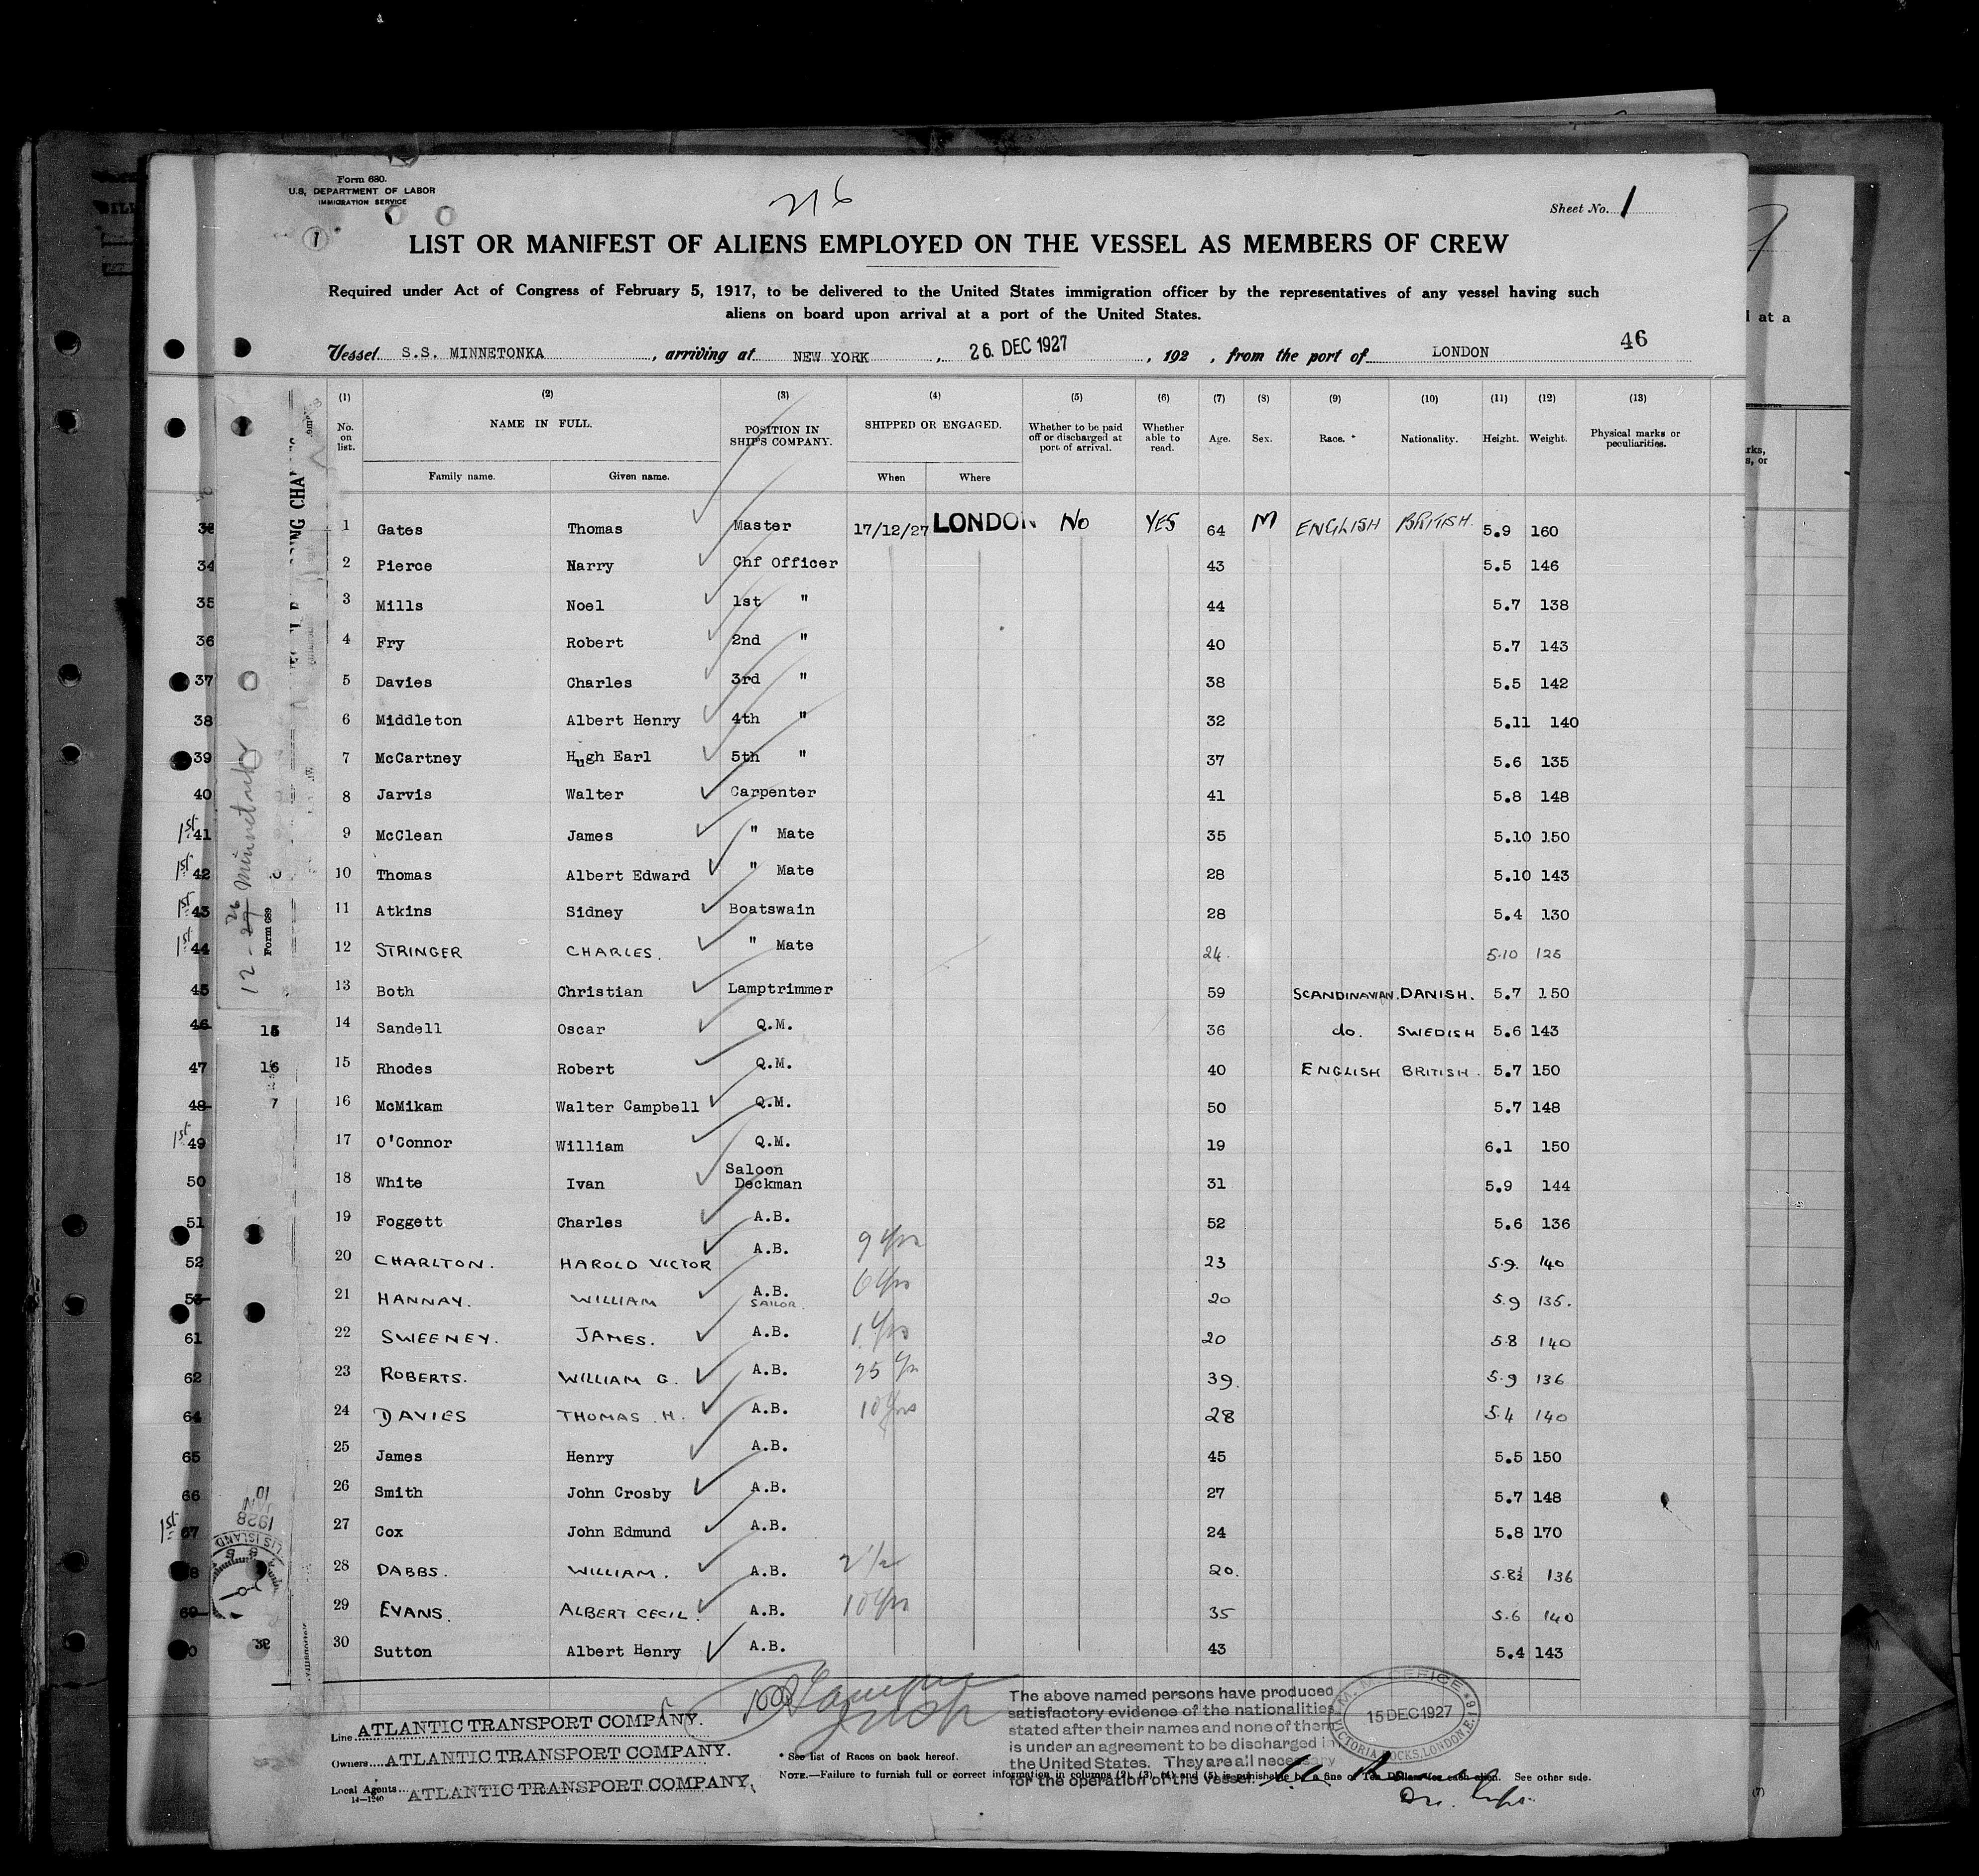 Form 680.
U.S. DEPARTMENT OF LABOR
IMMIGRATION SERVICE
216
Sheet No. 1
1
LIST OR MANIFEST OF ALIENS EMPLOYED ON THE VESSEL AS MEMBERS OF CREW
Required under Act of Congress of February 5, 1917, to be delivered to the United States immigration officer by the representatives of any vessel having such
aliens on board upon arrival at a port of the United States.
Vessel S.S. MINNETONKA, arriving at NEW YORK, 26. DEC 1927, 192 , from the port of LONDON 46
(1) (2) (3) (4) (5) (6) (7) (8) (9) (10) (11) (12) (13)
No. on list. NAME IN FULL. POSITION IN SHIP'S COMPANY. SHIPPED OR ENGAGED. Whether to be paid off or discharged at port of arrival. Whether able to read. Age. Sex. Race.* Nationality. Height. Weight. Physical marks or peculiarities.
Family name. Given name. When Where
1 Gates Thomas Master 17/12/27 LONDON No YES 64 M ENGLISH BRITISH 5.9 160
34 2 Pierce Narry Chf Officer 43 5.5 146
35 3 Mills Noel 1st " 44 5.7 138
36 4 Fry Robert 2nd " 40 5.7 143
37 5 Davies Charles 3rd " 38 5.5 142
38 6 Middleton Albert Henry 4th " 32 5.11 140
39 7 McCartney Hugh Earl 5th " 37 5.6 135
40 8 Jarvis Walter Carpenter 41 5.8 148
1st 41 9 McClean James " Mate 35 5.10 150
1st 42 10 Thomas Albert Edward " Mate 28 5.10 143
1st 43 11 Atkins Sidney Boatswain 28 5.4 130
1st 44 12 STRINGER CHARLES. " Mate 24. 5.10 125
45 13 Both Christian Lamptrimmer 59 SCANDINAVIAN. DANISH. 5.7 150
46 14 Sandell Oscar Q.M. 36 do. SWEDISH 5.6 143
47 16 15 Rhodes Robert Q.M. 40 ENGLISH BRITISH. 5.7 150
48 7 16 McMikam Walter Campbell Q.M. 50 5.7 148
1st 49 17 O'Connor William Q.M. 19 6.1 150
50 18 White Ivan Saloon Deckman 31 5.9 144
51 19 Foggett Charles A.B. 52 5.6 136
52 20 CHARLTON. HAROLD VICTOR A.B. 9 yrs 23 5.9. 140
53 21 HANNAY. WILLIAM A.B. SAILOR. 6 yrs 20 5.9 135.
61 22 SWEENEY. JAMES. A.B. 1 yrs 20 5.8 140
62 23 ROBERTS. WILLIAM G. A.B. 25 yrs 39. 5.9 136
64 24 DAVIES THOMAS H. A.B. 10 yrs 28 5.4 140
65 25 James Henry A.B. 45 5.5 150
66 26 Smith John Crosby A.B. 27 5.7 148
1st 67 27 Cox John Edmund A.B. 24 5.8 170
28 DABBS. WILLIAM. A.B. 2 1/2 20. 5.8½ 136
69 29 EVANS. ALBERT CECIL. A.B. 10 yrs 35 5.6 140
30 Sutton Albert Henry A.B. 43 5.4 143
12-26 Minnetonka
Form 689
10 JAN 1928
The above named persons have produced
satisfactory evidence of the nationalities
stated after their names and none of them
is under an agreement to be discharged in
the United States. They are all necessary
for the operation of the vessel.
M. M. OFFICE
15 DEC 1927
VICTORIA DOCKS, LONDON, E.16
Line ATLANTIC TRANSPORT COMPANY.
Owners ATLANTIC TRANSPORT COMPANY.
Local Agents ATLANTIC TRANSPORT COMPANY.
14—1240
* See list of Races on back hereof.
NOTE.—Failure to furnish full or correct information in columns (2), (3), (4) and (5) is punishable by a fine of Ten Dollars for each alien. See other side.
(7)